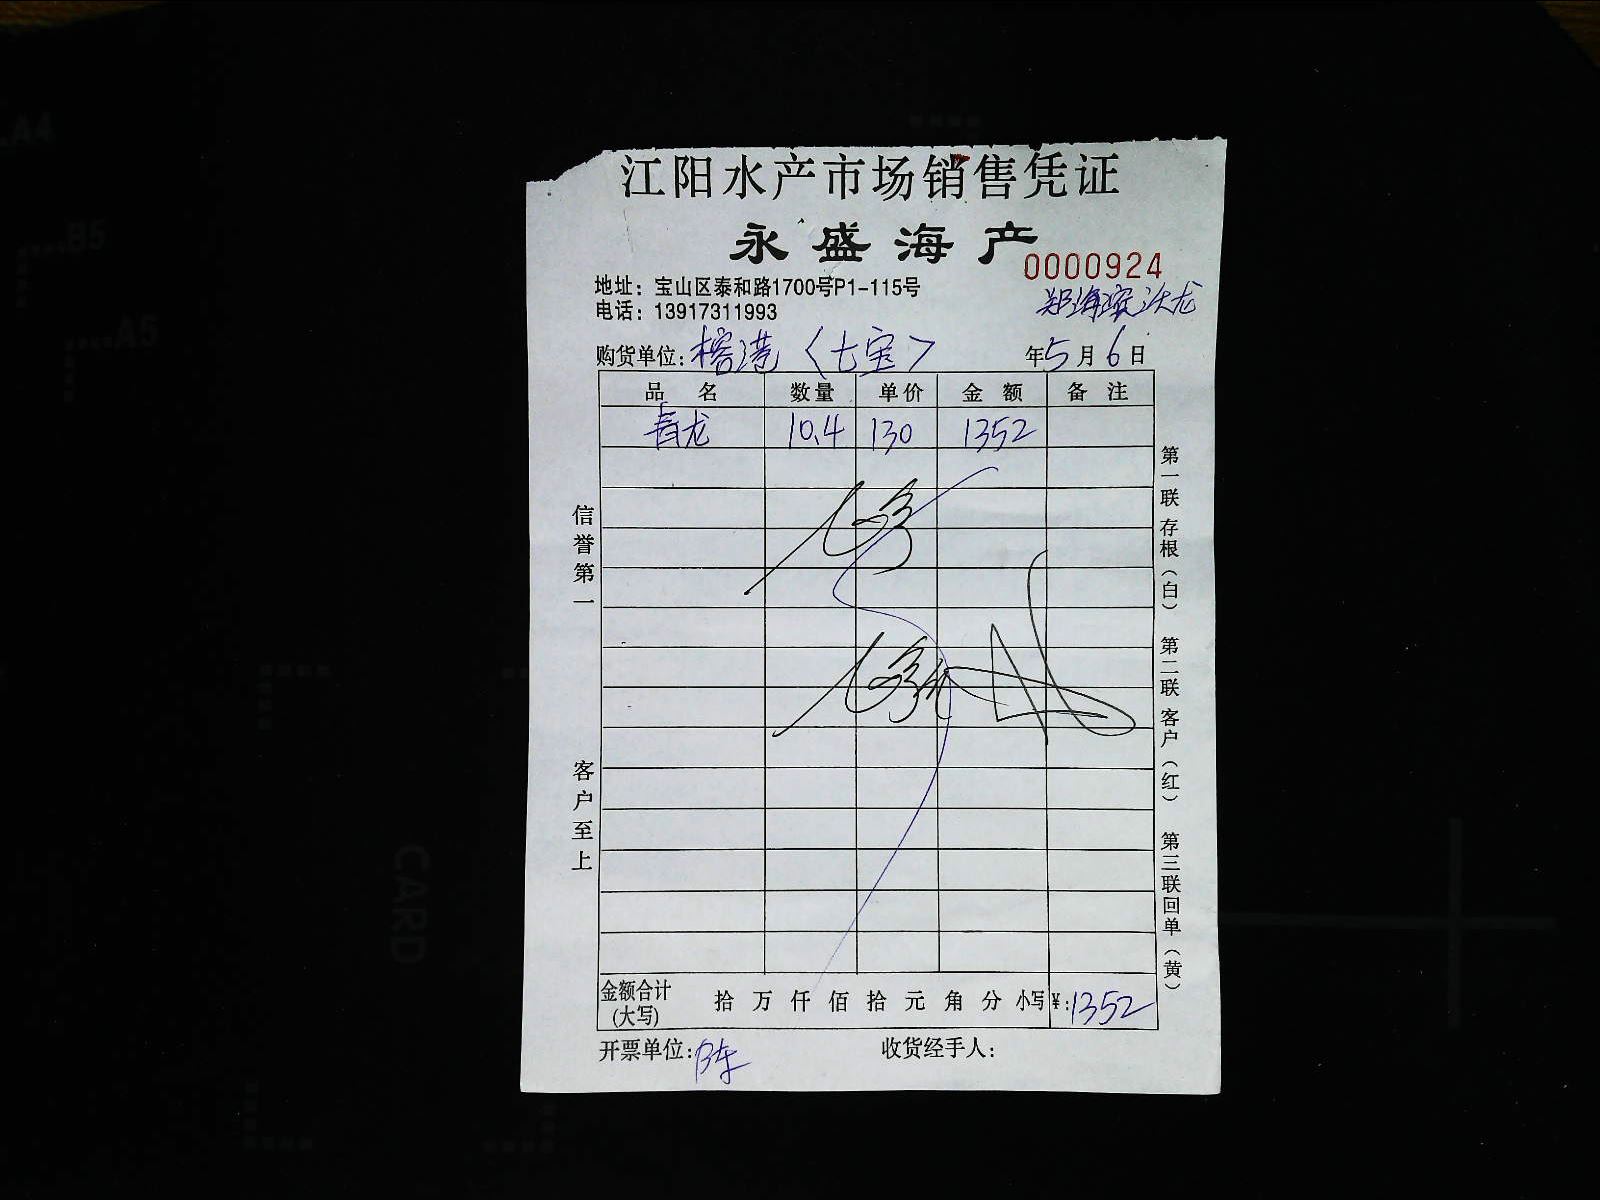 江阳水产市场销售凭证
永盛海产
0000924
地址：宝山区泰和路1700号P1-115号
电话：13917311993
购货单位：榕港〈七宝〉 年5月6日
品 名 数量 单价 金 额 备 注
青龙 10.4 130 1352
信誉第一
客户至上
第一联 存根（白）
第二联 客户（红）
第三联 回单（黄）
金额合计(大写) 拾 万 仟 佰 拾 元 角 分 小写 ¥：1352
开票单位：陈 收货经手人：
A4
B5
A5
CARD